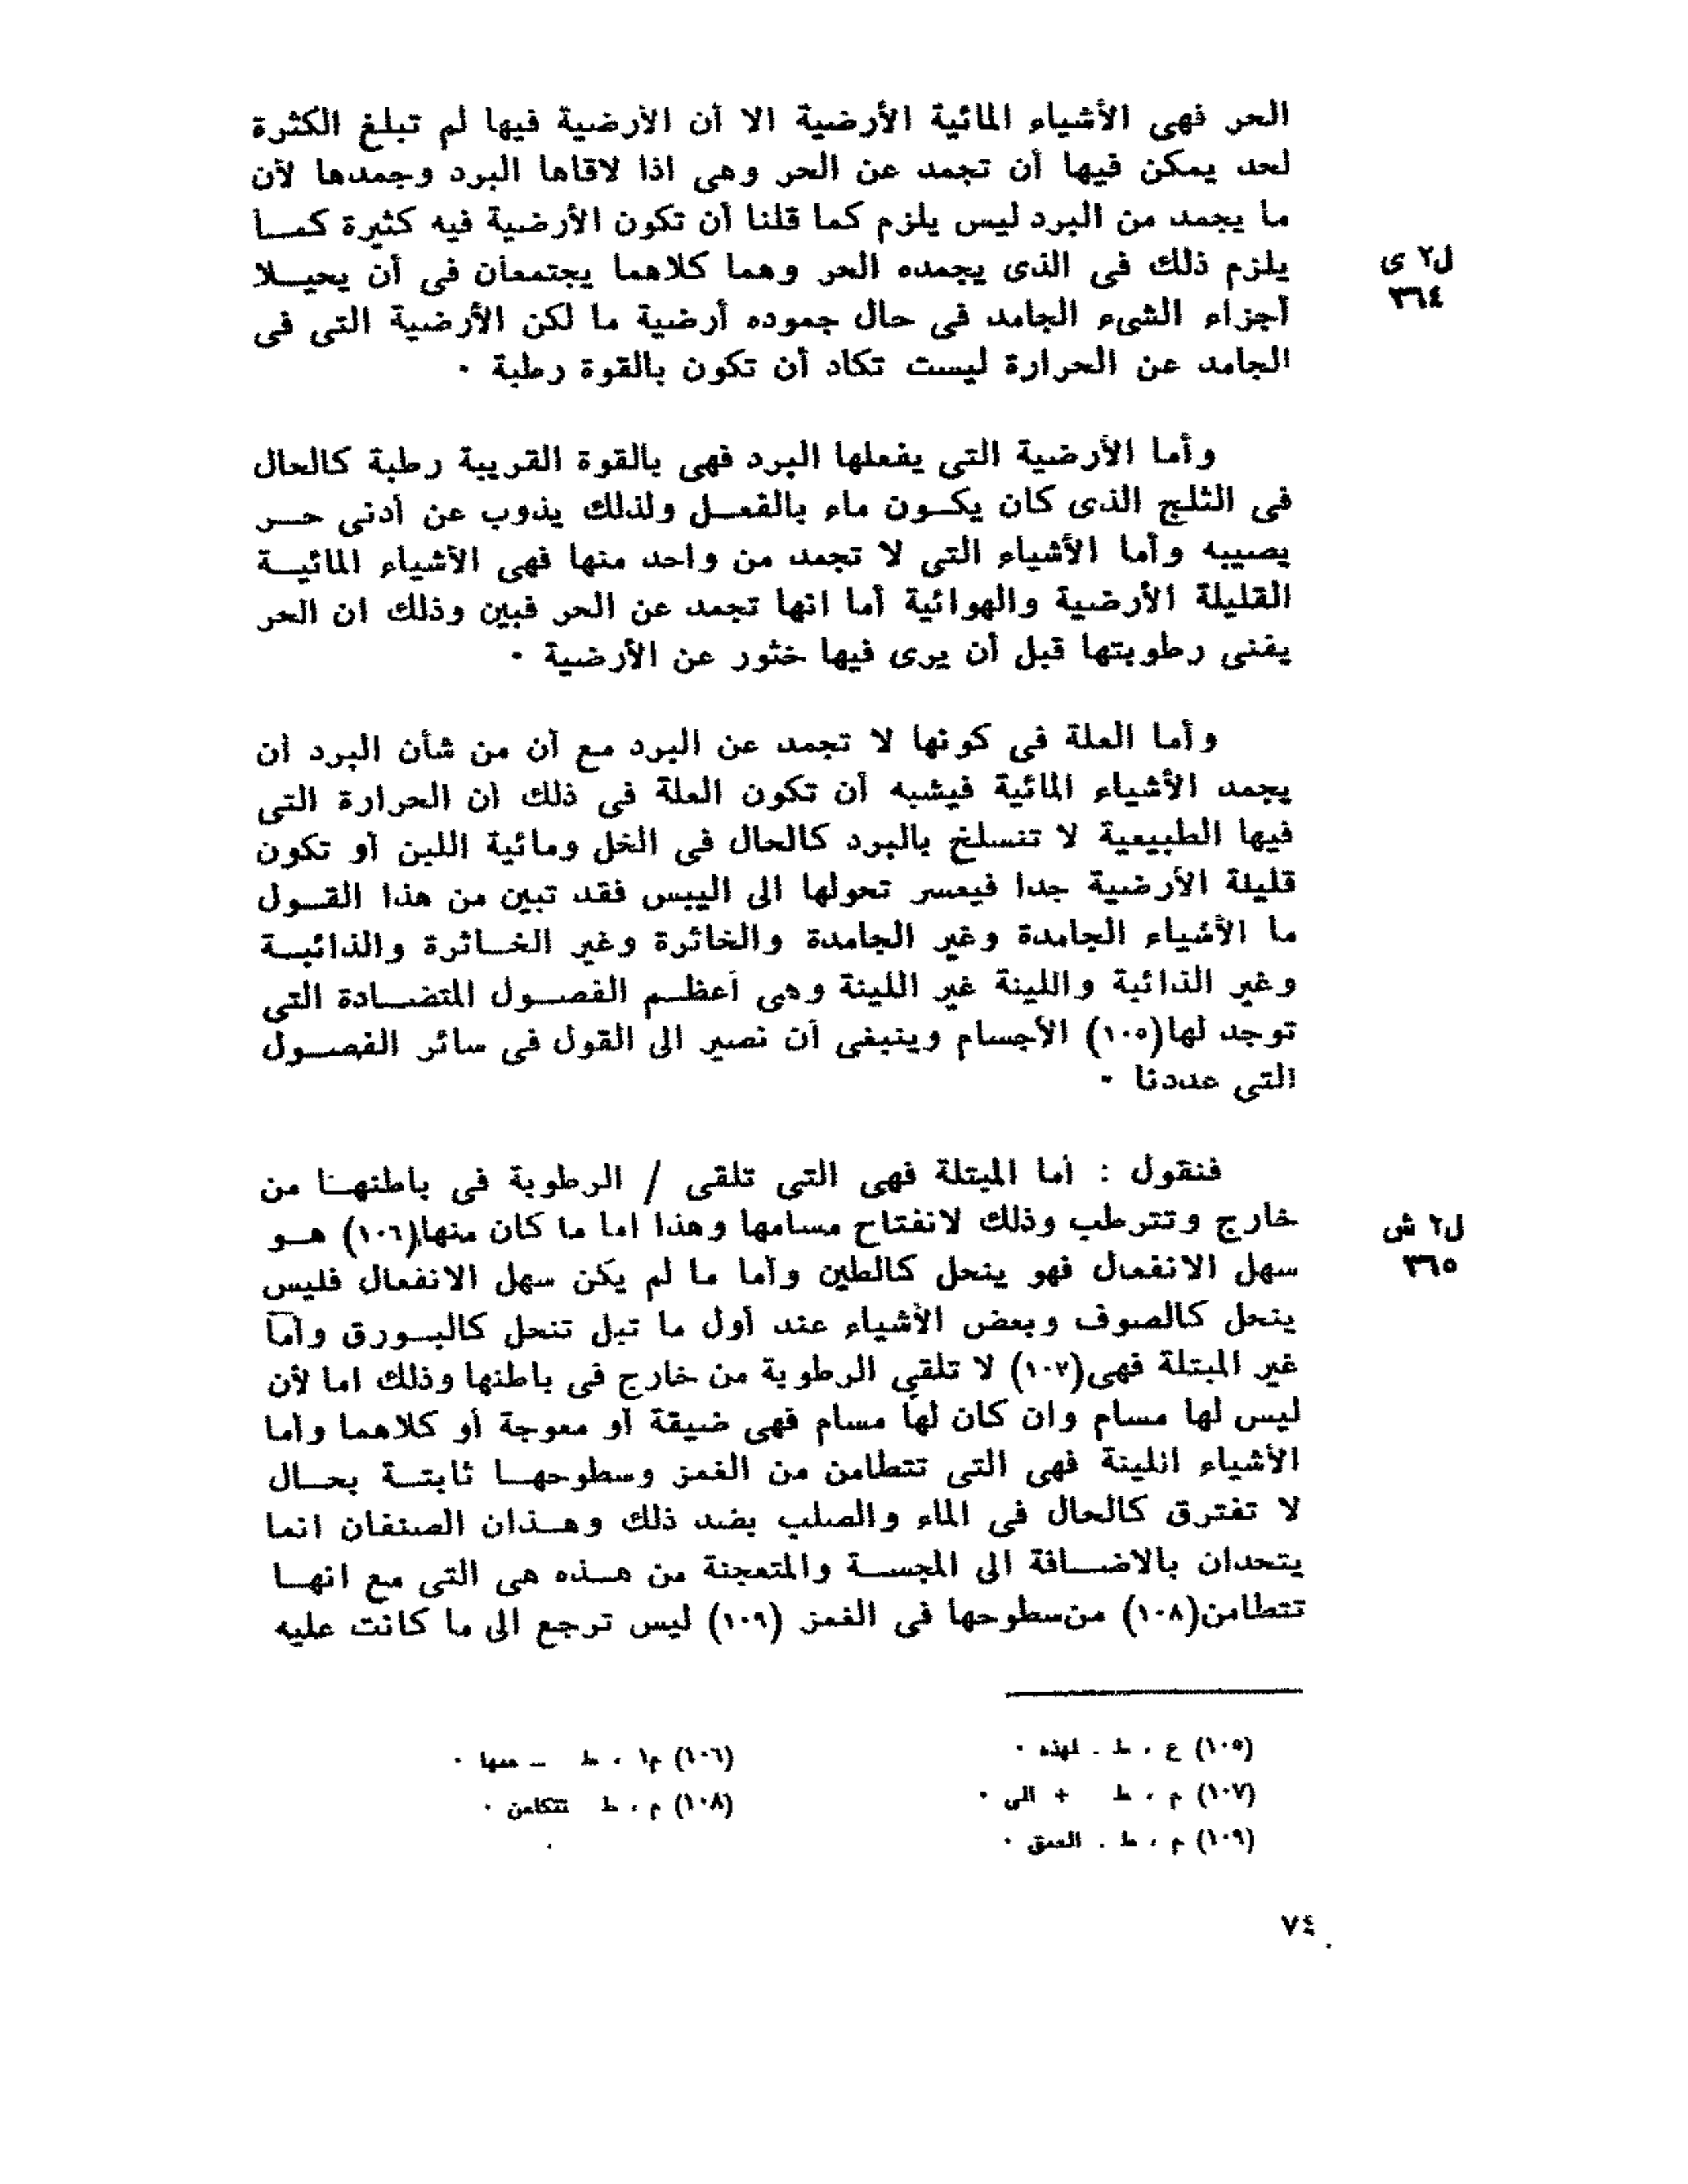 الحر فهى الأشياء المائية الأرضية الا أن الأرضية فيها لم تبلغ الكثرة
لحد يمكن فيها أن تجمد عن الحر وهى اذا لاقاها البرد وجمدها لأن
ما يجمد من البرد ليس يلزم كما قلنا أن تكون الأرضية فيه كثيرة كما
يلزم ذلك فى الذى يجمده الحر وهما كلاهما يجتمعان فى أن يحيلا
ل٢ ى
٣٦٤
أجزاء الشىء الجامد فى حال جموده أرضية ما لكن الأرضية التى فى
الجامد عن الحرارة ليست تكاد أن تكون بالقوة رطبة ·
وأما الأرضية التى يفعلها البرد فهى بالقوة القريبة رطبة كالحال
فى الثلج الذى كان يكون ماء بالفعل ولذلك يذوب عن أدنى حر
يصيبه وأما الأشياء التى لا تجمد من واحد منها فهى الأشياء المائية
القليلة الأرضية والهوائية أما انها تجمد عن الحر فبين وذلك ان الحر
يفنى رطوبتها قبل أن يرى فيها خثور عن الأرضية ·
وأما العلة فى كونها لا تجمد عن البرد مع أن من شأن البرد أن
يجمد الأشياء المائية فيشبه أن تكون العلة فى ذلك أن الحرارة التى
فيها الطبيعية لا تنسلخ بالبرد كالحال فى الخل ومائية اللبن أو تكون
قليلة الأرضية جدا فيعسر تحولها الى اليبس فقد تبين من هذا القول
ما الأشياء الجامدة وغير الجامدة والخاثرة وغير الخاثرة والذائبة
وغير الذائبة واللينة غير اللينة وهى أعظم الفصول المتضادة التى
توجد لها(١٠٥) الأجسام وينبغى أن نصير الى القول فى سائر الفصول
التى عددنا ·
فنقول : أما المبتلة فهى التى تلقى / الرطوبة فى باطنها من
خارج وتترطب وذلك لانفتاح مسامها وهذا اما ما كان منها(١٠٦) هو
ل٢ ش
٣٦٥
سهل الانفعال فهو ينحل كالطين وأما ما لم يكن سهل الانفعال فليس
ينحل كالصوف وبعض الأشياء عند أول ما تبل تنحل كالبورق وأما
غير المبتلة فهى(١٠٧) لا تلقي الرطوبة من خارج فى باطنها وذلك اما لأن
ليس لها مسام وان كان لها مسام فهى ضيقة أو معوجة أو كلاهما وأما
الأشياء انلينة فهى التى تتطامن من الغمز وسطوحها ثابتة بحال
لا تفترق كالحال فى الماء والصلب بضد ذلك وهذان الصنفان انما
يتحدان بالاضافة الى المجسة والمتعجنة من هذه هى التى مع انها
تتطامن(١٠٨) من سطوحها فى الغمز (١٠٩) ليس ترجع الى ما كانت عليه
(١٠٥) ع ، ط . لهذه ·
(١٠٦) م١ ، ط – منها ·
(١٠٧) م ، ط + الى ·
(١٠٨) م ، ط تتكامن ·
(١٠٩) م ، ط . العمق ·
٧٤